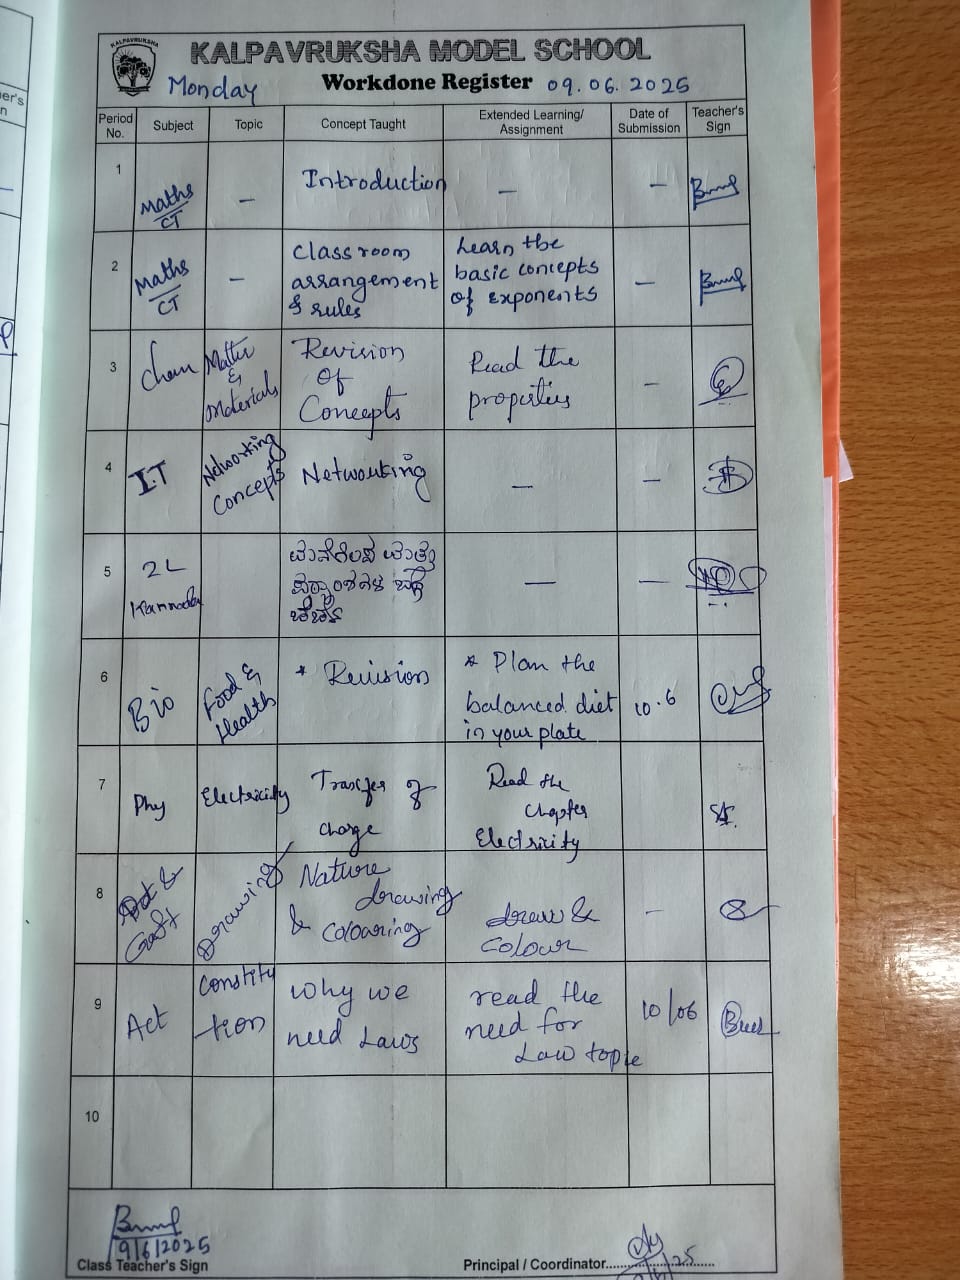 KALPAVRUKSHA
KALPAVRUKSHA MODEL SCHOOL
Monday Workdone Register 09.06.2025
Period No. Subject Topic Concept Taught Extended Learning/ Assignment Date of Submission Teacher's Sign
1 Maths/CT — Introduction — —
2 Maths/CT — Class room arrangement & rules Learn the basic concepts of exponents —
3 Chem Matter & Materials Revision of Concepts Read the properties —
4 I.T Networking Concepts Networking — —
5 2L Kannada — —
6 Bio Food & Health * Revision * Plan the balanced diet in your plate 10.6
7 Phy Electricity Transfer of charge Read the chapter Electricity
8 Art & Craft Drawing Nature drawing & colouring draw & colour —
9 Act Constitution why we need Laws read the need for Law topic 10/06
10
9/6/2025
Class Teacher's Sign Principal / Coordinator